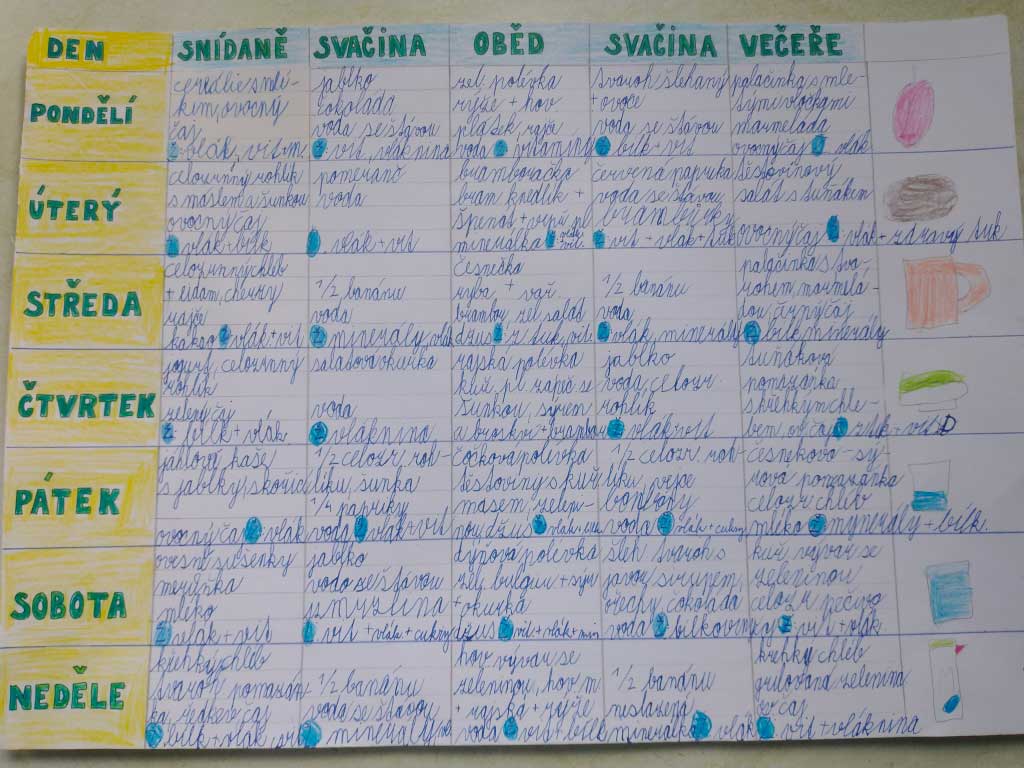 DEN SNÍDANĚ SVAČINA OBĚD SVAČINA VEČEŘE
PONDĚLÍ
cereálie s mlé-
kem, ovocný
čaj
vlák, vit+m.
jablko
čokoláda
voda se šťávou
vit, vláknina
zel. polévka
rýže + hov.
plátek, rajč.
voda vitamíny
tvaroh šlehaný
+ ovoce
voda se šťávou
bílk + vit
palačinka s mlé-
tými vločkami
marmeláda
ovocný čaj vlák
ÚTERÝ
celozrnný rohlík
s máslem a šunkou
ovocný čaj
vlák + bílk
pomeranč
voda
vlák + vit
bramboračka
bram knedlík +
špenát + vepř. pl.
minerálka
červená paprika
voda se šťávou
brambůrky
vit + vlák + tuk
těstovinový
salát s tuňákem
ovocný čaj vlák + zdravý tuk
STŘEDA
celozrnný chléb
+ eidam, cherry
rajče
kakao vlák + vit
1/2 banánu
voda
minerály, vlák
česnečka
ryba + vař.
brambor, zel. salát
džus z tuk, vit
1/2 banánu
voda
vlák, minerály
palačinka s tva-
rohem, marmelá-
dou, černý čaj
bílk, minerály
ČTVRTEK
jogurt, celozrnný
rohlík
zelený čaj
bílk + vlák
salátová okurka
voda
vláknina
rajská polévka
kuř. pl. zapeč. se
šunkou, sýrem
a broskví + brambor
jablko
voda, celozr.
rohlík
vlák + vit
tuňáková
pomazánka
s křehkým chle-
bem, ov. čaj
PÁTEK
jáhlová kaše
s jablky, skořicí
ovocný čaj vlák
1/2 celozr. roh-
líku, šunka
1/4 papriky
voda vlák + vit
čočková polévka
těstoviny s kuř.
masem, zelen-
nou džus
1/2 celozr. roh-
líku, vejce
bonbony
voda vlák + cukry
česneková - sý-
rová pomazánka
celozr. chléb
mléko mynerály + bílk.
SOBOTA
ovesné sušenky
meruňka
mléko
vlák + vit
jablko
voda se šťávou
zmrzlina
vit + vlák + cukry
dýňová polévka
zel. bulgur + sýr
+ okurka
džus vit + vlák + min
šleh. tvaroh s
javor. sirupem,
ořechy, čokoláda
voda bílkoviny
kuř. vývar se
zeleninou
celozr. pečivo
vit + vlák
NEDĚLE
křehký chléb
tvaroh. pomazán-
ka, ředkev, čaj
bílk + vlák, vit
1/2 banánu
voda se šťávou
minerály
hov. vývar se
zeleninou, hov. m
+ rajská + rýže
voda vit + bílk
1/2 banánu
neslazená
minerálka vlák
křehký chléb
grilovaná zelenina
čaj
vit + vláknina